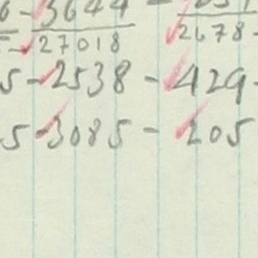 3644
27018 2678-
5-2538-429-
5-3085-205